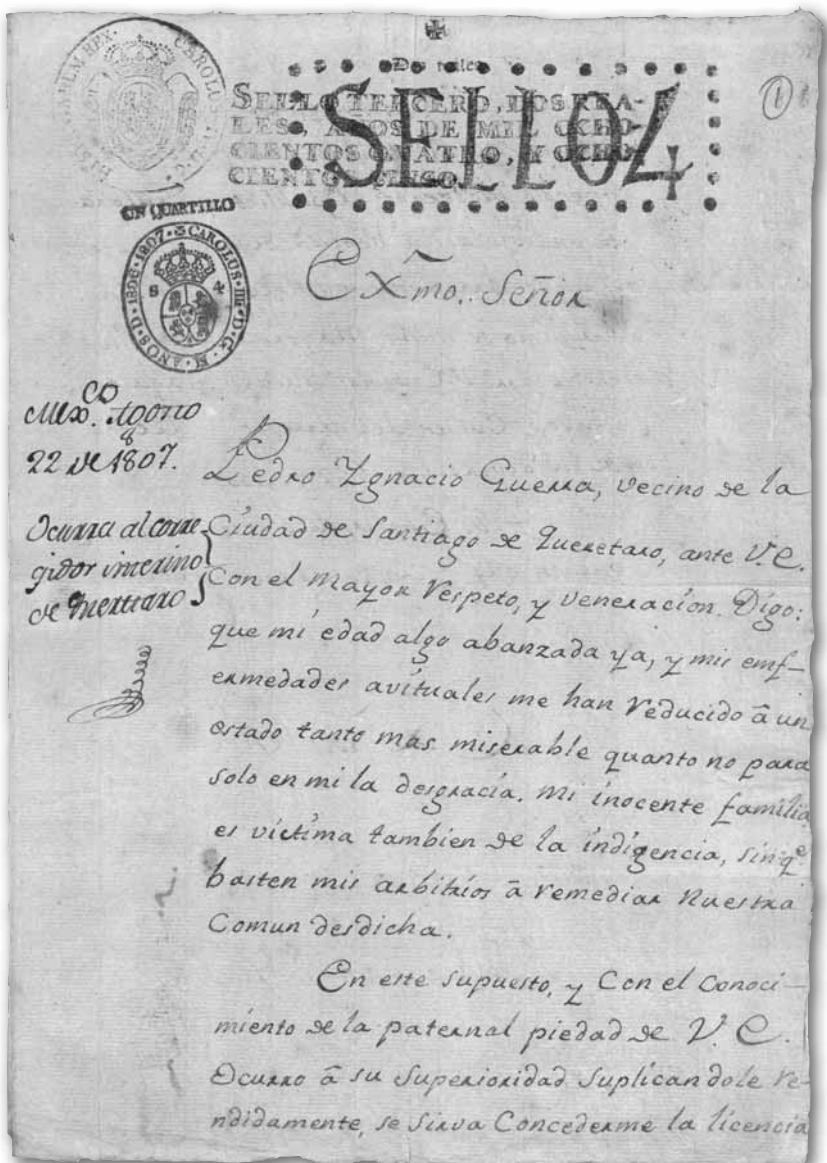 Dos reales
SELLO TERCERO, DOS REA-
LES, AÑOS DE MIL OCHO-
CIENTOS QUATRO, Y OCHO-
CIENTOS CINCO.
SELLO 4
1
CAROLUS
UN QUARTILLO
CAROLUS·IIII·D·G·
·M·AÑOS·D·1806·1807·
S 4
Exmõ. Señor
Mexco. Agosto
22 de 1807.
Ocurra al corre-
gidor interino
de Querétaro
Pedro Ygnacio Guerra, vecino de la
Ciudad de Santiago de Queretaro, ante V.E.
Con el mayor respeto, y veneracion. Digo:
que mi edad algo abanzada ya, y mis enf-
ermedades avituales me han reducido â un
estado tanto mas miserable quanto no para
solo en mi la desgracia. mi inocente familia
es víctima tambien de la indigencia, sin qe.
basten mis arbitrios â remediar nuestra
Comun desdicha.
En este supuesto, y Con el Conoci-
miento de la paternal piedad de V. E.
Ocurro â su Superioridad Suplicandole re-
ndidamente, se sirva Concederme la licencia